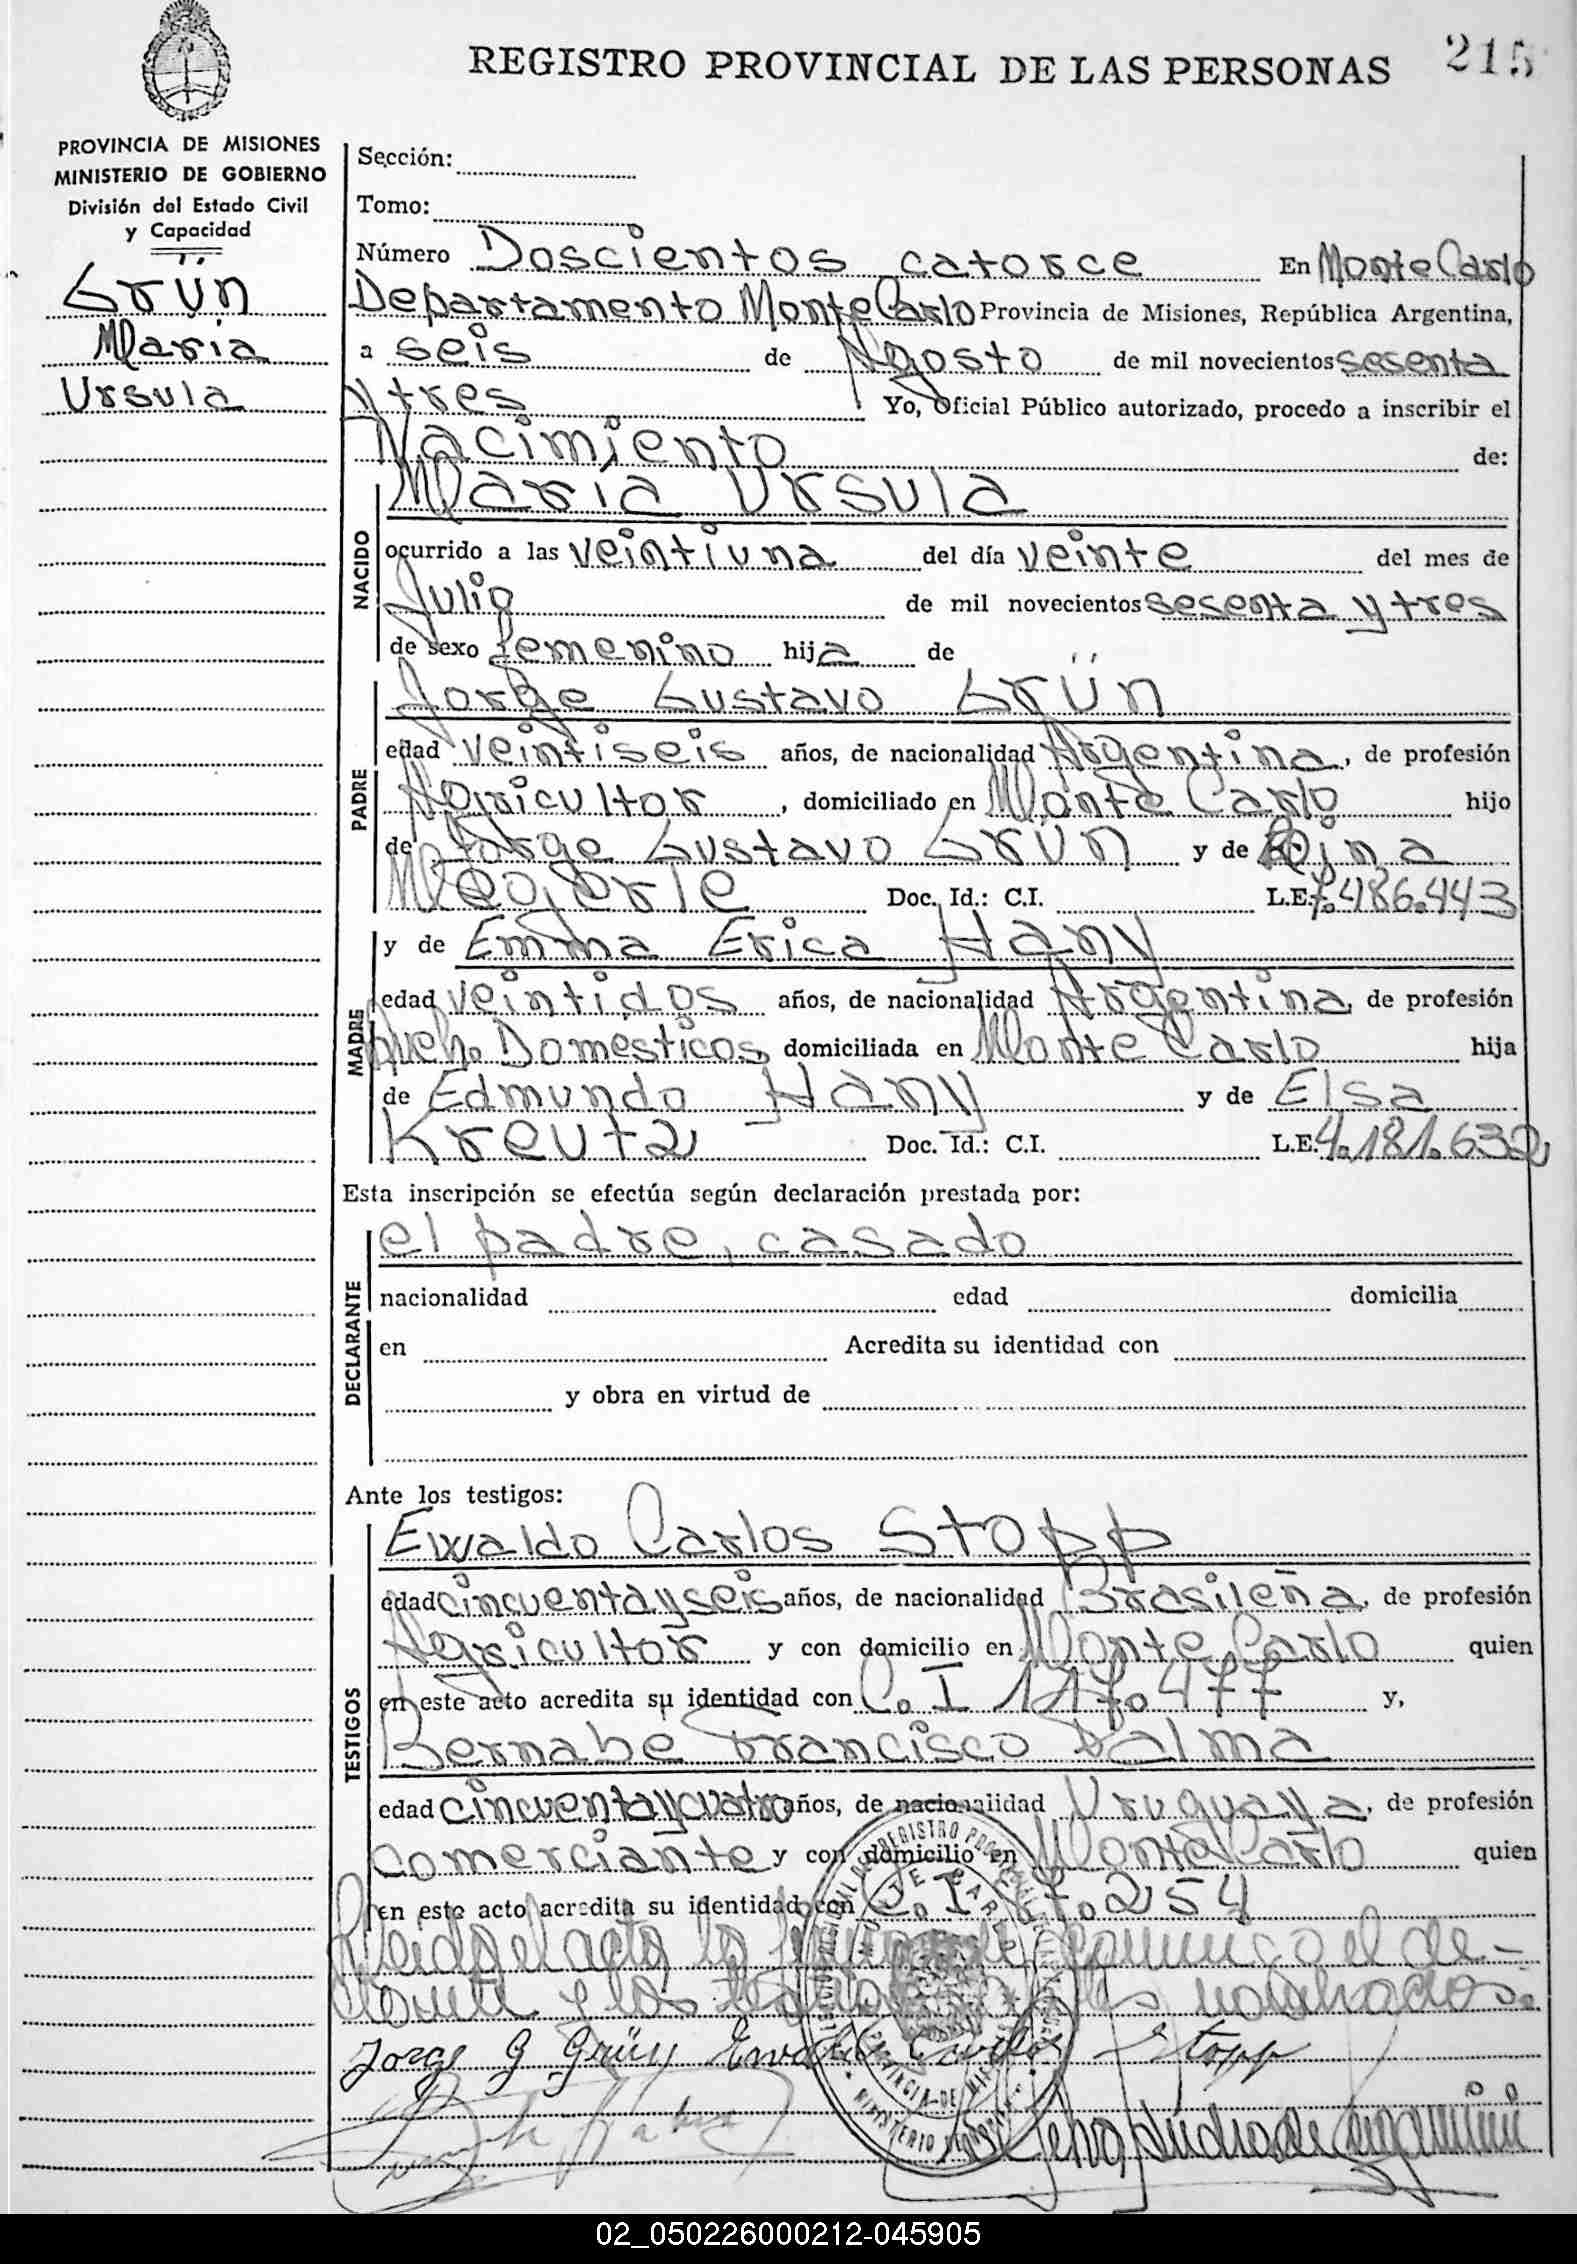 REGISTRO PROVINCIAL DE LAS PERSONAS 215
PROVINCIA DE MISIONES
MINISTERIO DE GOBIERNO
División del Estado Civil
y Capacidad
Grün
Maria
Ursula
Sección:
Tomo:
Número Doscientos catorce En Monte Carlo
Departamento Monte Carlo Provincia de Misiones, República Argentina,
a seis de Agosto de mil novecientos sesenta
y tres Yo, Oficial Público autorizado, procedo a inscribir el
Nacimiento de:
NACIDO
Maria Ursula
ocurrido a las veintiuna del día veinte del mes de
Julio de mil novecientos sesenta y tres
de sexo femenino hija de
PADRE
Jorge Gustavo Grün
edad veintiseis años, de nacionalidad Argentina, de profesión
Agricultor, domiciliado en Monte Carlo hijo
de Jorge Gustavo Grün y de
Doc. Id.: C.I. L.E. 7.486.443
MADRE
y de Emma Erica Hany
edad veintidos años, de nacionalidad Argentina, de profesión
Domesticos, domiciliada en Monte Carlo hija
de Edmundo Hany y de Elsa
Kreutz Doc. Id.: C.I. L.E. 4.181.632
Esta inscripción se efectúa según declaración prestada por:
DECLARANTE
el padre, casado
nacionalidad edad domicilia
en Acredita su identidad con
y obra en virtud de
Ante los testigos:
TESTIGOS
Ewaldo Carlos Stopp
edad cincuenta y seis años, de nacionalidad Brasileña, de profesión
Agricultor y con domicilio en Monte Carlo quien
en este acto acredita su identidad con C. I 117.477 y,
Bernabe Francisco Dalma
edad cincuenta y cuatro años, de nacionalidad Uruguaya, de profesión
comerciante y con domicilio en Monte Carlo quien
en este acto acredita su identidad con C. I 254
Leida el acta la conmigo el de-
clarante y los testigos nombrados.
Jorge G Grün Ewaldo Carlos Stopp
02_050226000212-045905